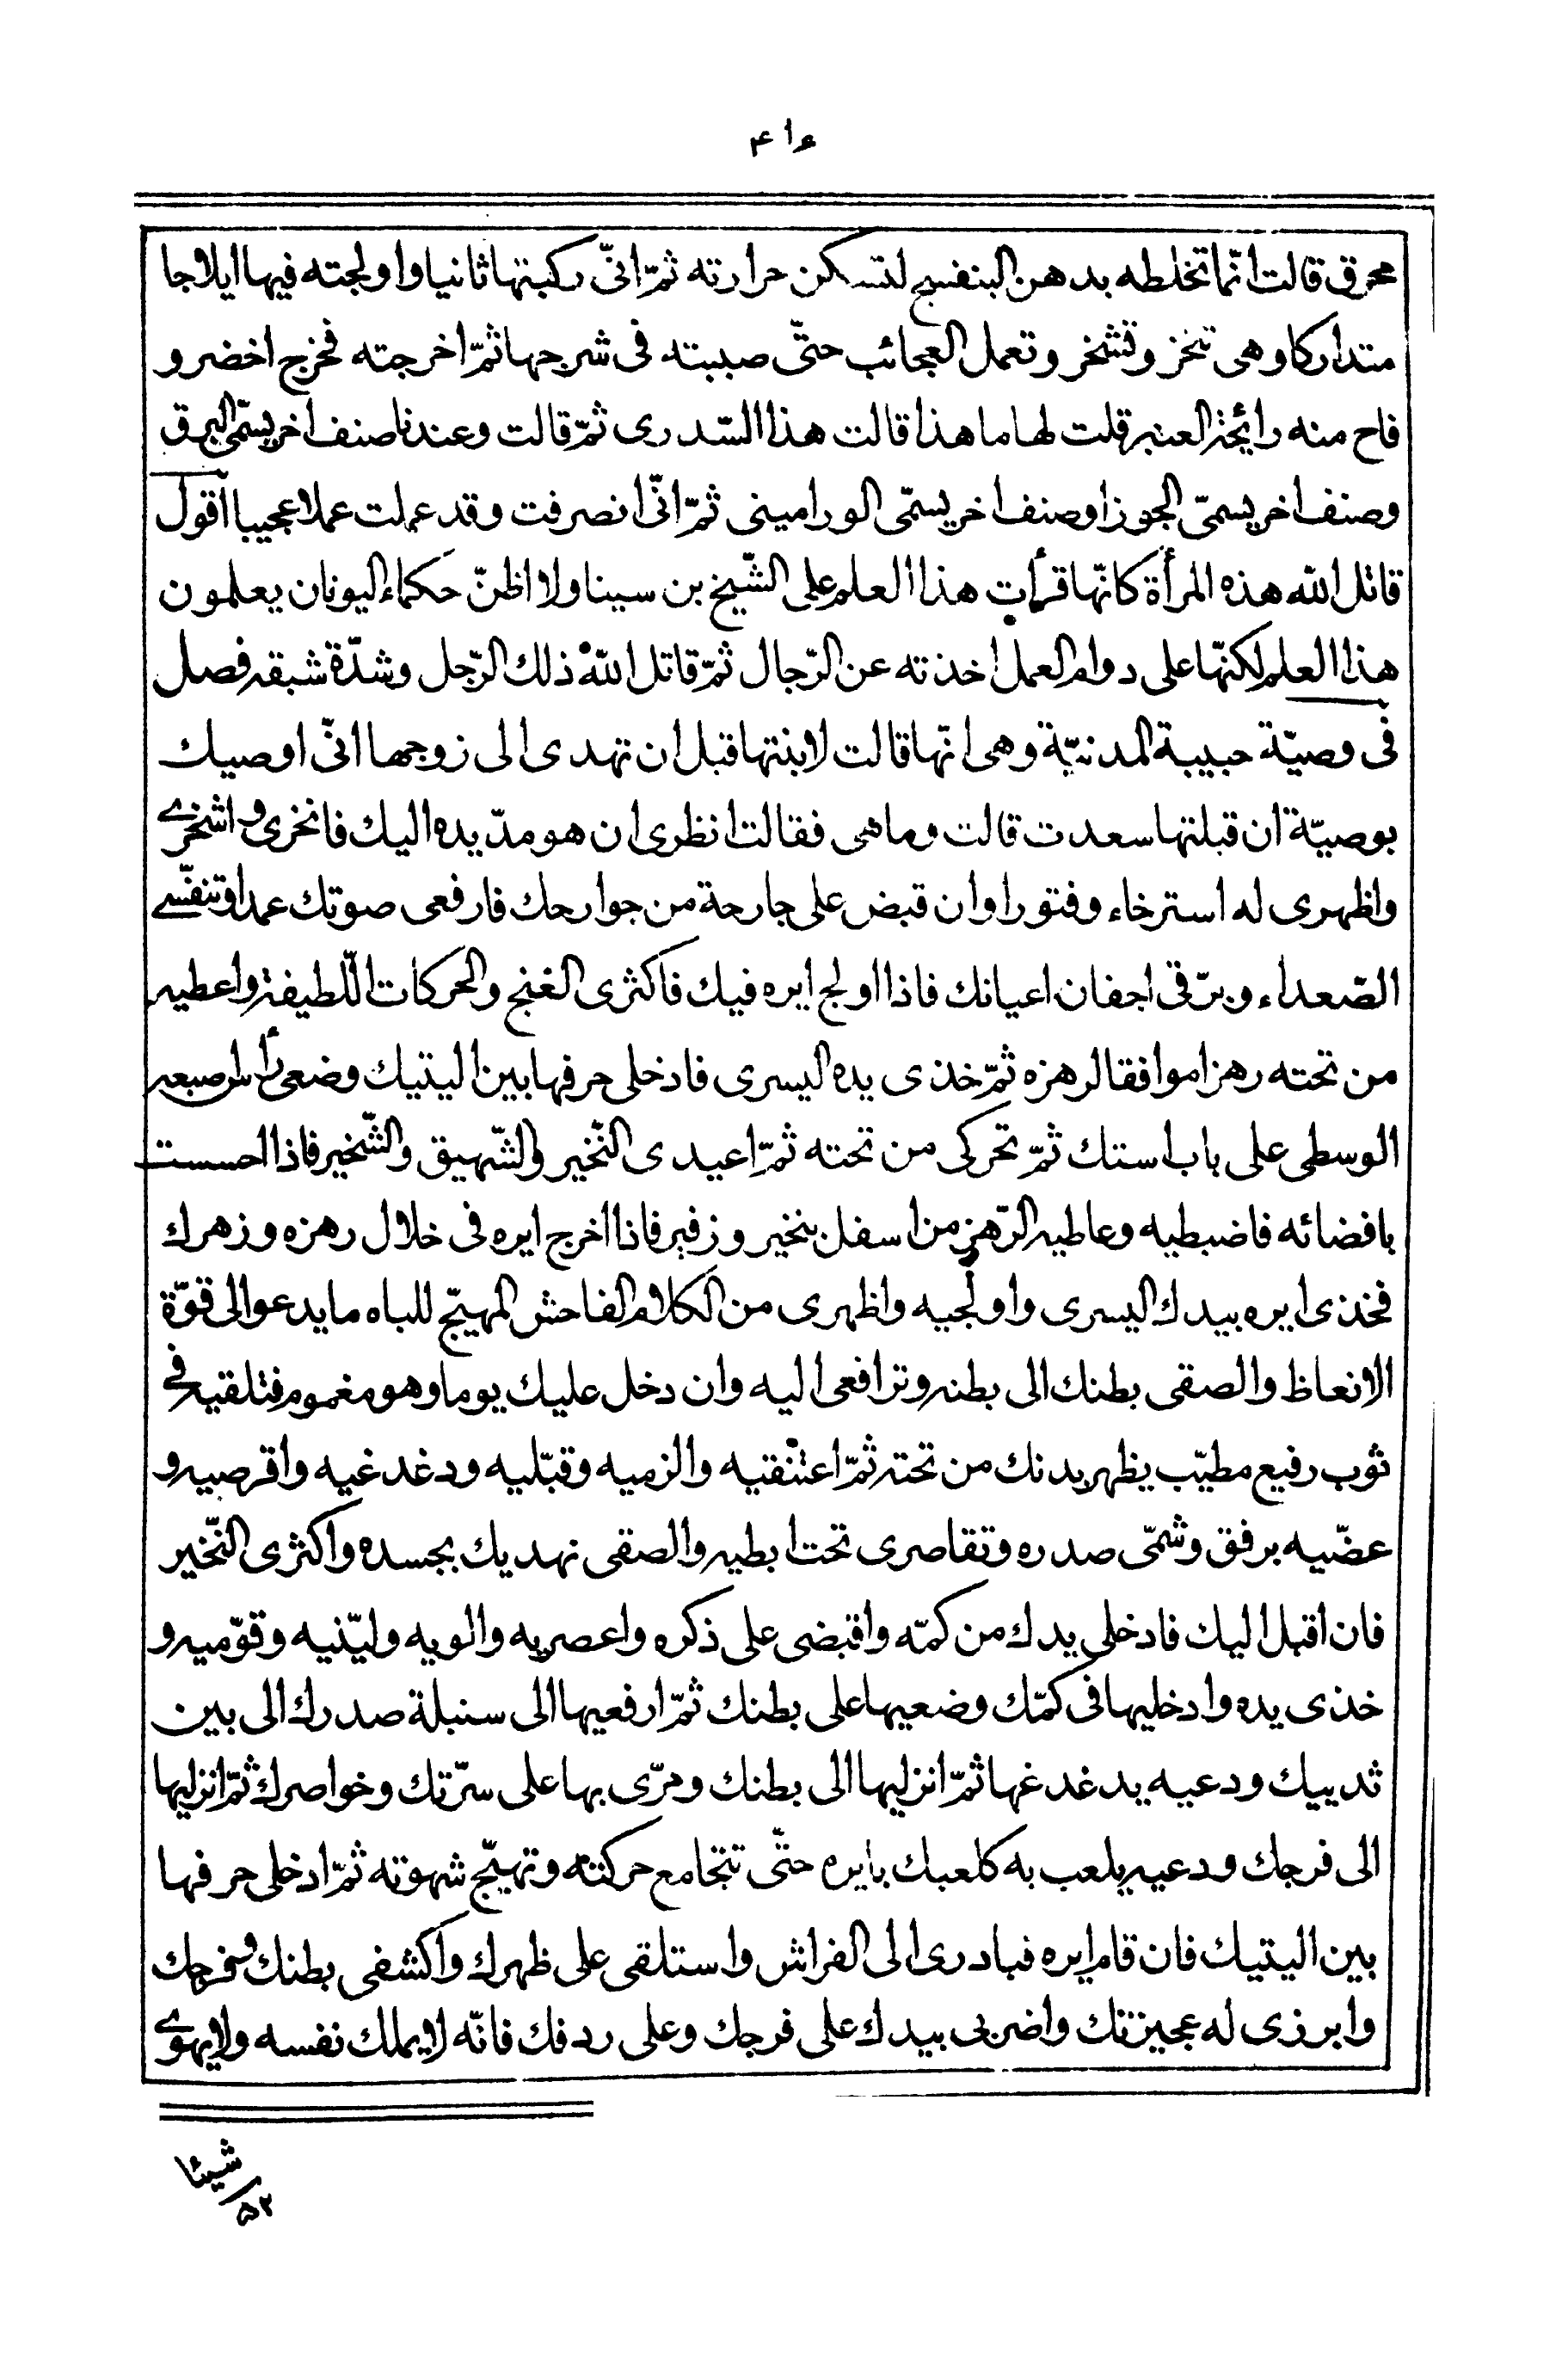 ۴۱۶
محرق قالت انّما تخلطه بدهن البنفسج لتسكن حرارته ثمّ انّى ركبتها ثانيا واولجته فيها ايلاجا
متداركا وهى تنخر وتشخر وتعمل العجائب حتّى صببته فى شرجها ثمّ اخرجته فخرج اخضر و
فاح منه رايحة العنبر قلت لها ما هذا قالت هذا السّدرى ثمّ قالت وعندنا صنف اخر يسمّى
وصنف اخر يسمّى الجوز اوصنف اخر يسمّى الورامينى ثمّ انّى انصرفت وقد عملت عملا عجيبا اقول
قاتل الله هذه المرأة كانّها قرأت هذا العلم على الشّيخ بن سينا ولا اظنّ حكماء اليونان يعلمون
هذا العلم لكنّها على دوام العمل اخذته عن الرّجال ثمّ قاتل الله ذلك الرّجل وشدّة شبقه فصل
فى وصيّة حبيبة المدنيّة وهى انّها قالت لابنتها قبل ان تهدى الى زوجها انّى اوصيك
بوصيّة ان قبلتها سعدت قالت وماهى فقالت انظرى ان هو مدّ يده اليك فانخرى واشخرى
واظهرى له استرخاء وفتورا وان قبض على جارحة من جوارحك فارفعى صوتك عمدا وتنفّسى
الصّعداء وبرّقى اجفان اعيانك فاذا اولج ايره فيك فاكثرى الغنج والحركات اللّطيفة واعطيه
من تحته رهزا موافقا لرهزه ثمّ خذى يده اليسرى فادخلى حرفها بين اليتيك وضعى رأس اصبعه
الوسطى على باب استك ثمّ تحركى من تحته ثمّ اعيدى النّخير والشّهيق والشّخير فاذا احسست
بافضائه فاضبطيه وعاطيه الرّهز من اسفل بنخير وزفير فاذا اخرج ايره فى خلال رهزه وزهرك
فخذى ايره بيدك اليسرى واولجيه واظهرى من الكلام الفاحش المهيّج للباه ما يدعو الى قوّة
الانعاظ والصقى بطنك الى بطنه وترافعى اليه وان دخل عليك يوما وهو مغموم فتلقيه فى
ثوب رفيع مطيّب يظهر بدنك من تحته ثمّ اعتنقيه والزميه وقبّليه ودغدغيه واقرصيه و
عضّيه برفق وشمّى صدره وتقاصرى تحت ابطيه والصقى نهديك بجسده واكثرى النّخير
فان اقبل اليك فادخلى يدك من كمّه واقبضى على ذكره واعصريه والويه وليّنيه وقوّميه و
خذى يده وادخليها فى كمّك وضعيها على بطنك ثمّ ارفعيها الى سنبلة صدرك الى بين
ثدييك ودعيه يدغدغها ثمّ انزليها الى بطنك ومرّى بها على سرّتك وخواصرك ثمّ انزليها
الى فرجك ودعيه يلعب به كلعبك بايره حتّى تتجامع حركته وتهيّج شهوته ثمّ ادخلى حرفها
بين اليتيك فان قام ايره فبادرى الى الفراش واستلقى على ظهرك واكشفى بطنك وفرجك
وابرزى له عجيزتك واضربى بيدك على فرجك وعلى ردفك فانّه لا يملك نفسه ولا يهوى
شيئا
۵۲